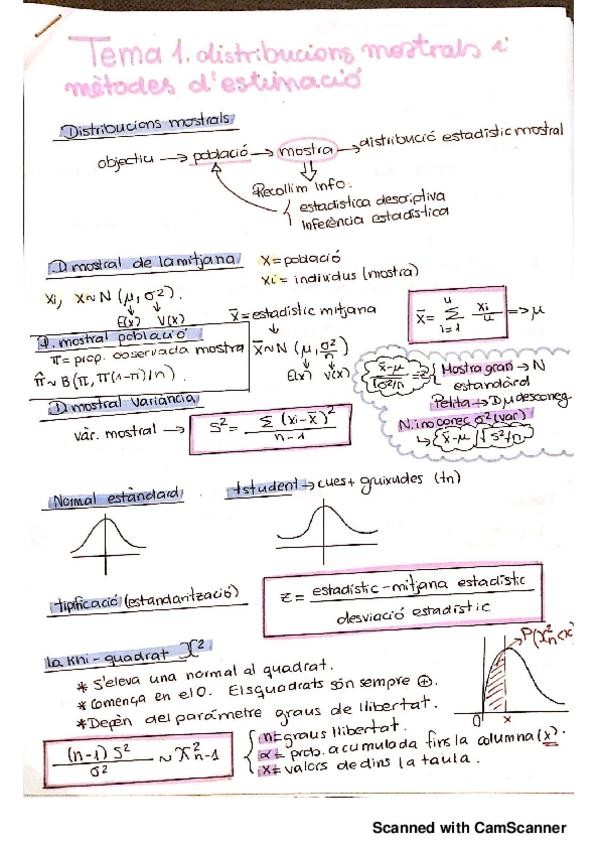 Tema 1. distribucions mostrals i
mètodes d'estimació
Distribucions mostrals
objectiu → població → mostra → distribució estadístic mostral
Recollim info.
estadística descriptiva
inferència estadística
D. mostral de la mitjana
X = població
xi = individus (mostra)
xi, X ~ N (μ, σ2).
E(x) V(x)
X̄ = estadístic mitjana
X̄ ~ N (μ, σ2/n)
E(x) V(x)
X̄ = Σ xi/n => μ
i=1
D. mostral població
π = prop. observada mostra
π̂ ~ B(π, π(1-π)/n).
x̄-μ / √σ2/n = z
Mostra gran → N
estandard
Petita → D μ desconeg
N. i no conec σ2 (var)
x̄-μ / √S2/n
D. mostral Variància
vàr. mostral → S2 = Σ (xi - x̄)2 / n-1
Normal estàndard
t student → cues + gruixudes (tn)
tipificació (estandarització)
z = estadístic - mitjana estadístic / desviació estadístic
La Khi-quadrat X2
* S'eleva una normal al quadrat.
* Comença en el 0. Els quadrats són sempre ⊕.
* Depèn del paràmetre graus de llibertat.
P(X2n < x
0 x
(n-1) S2 / σ2 ~ X2n-1
n = graus llibertat.
α = prob. acumulada fins la columna (x).
x = valors de dins la taula.
Scanned with CamScanner